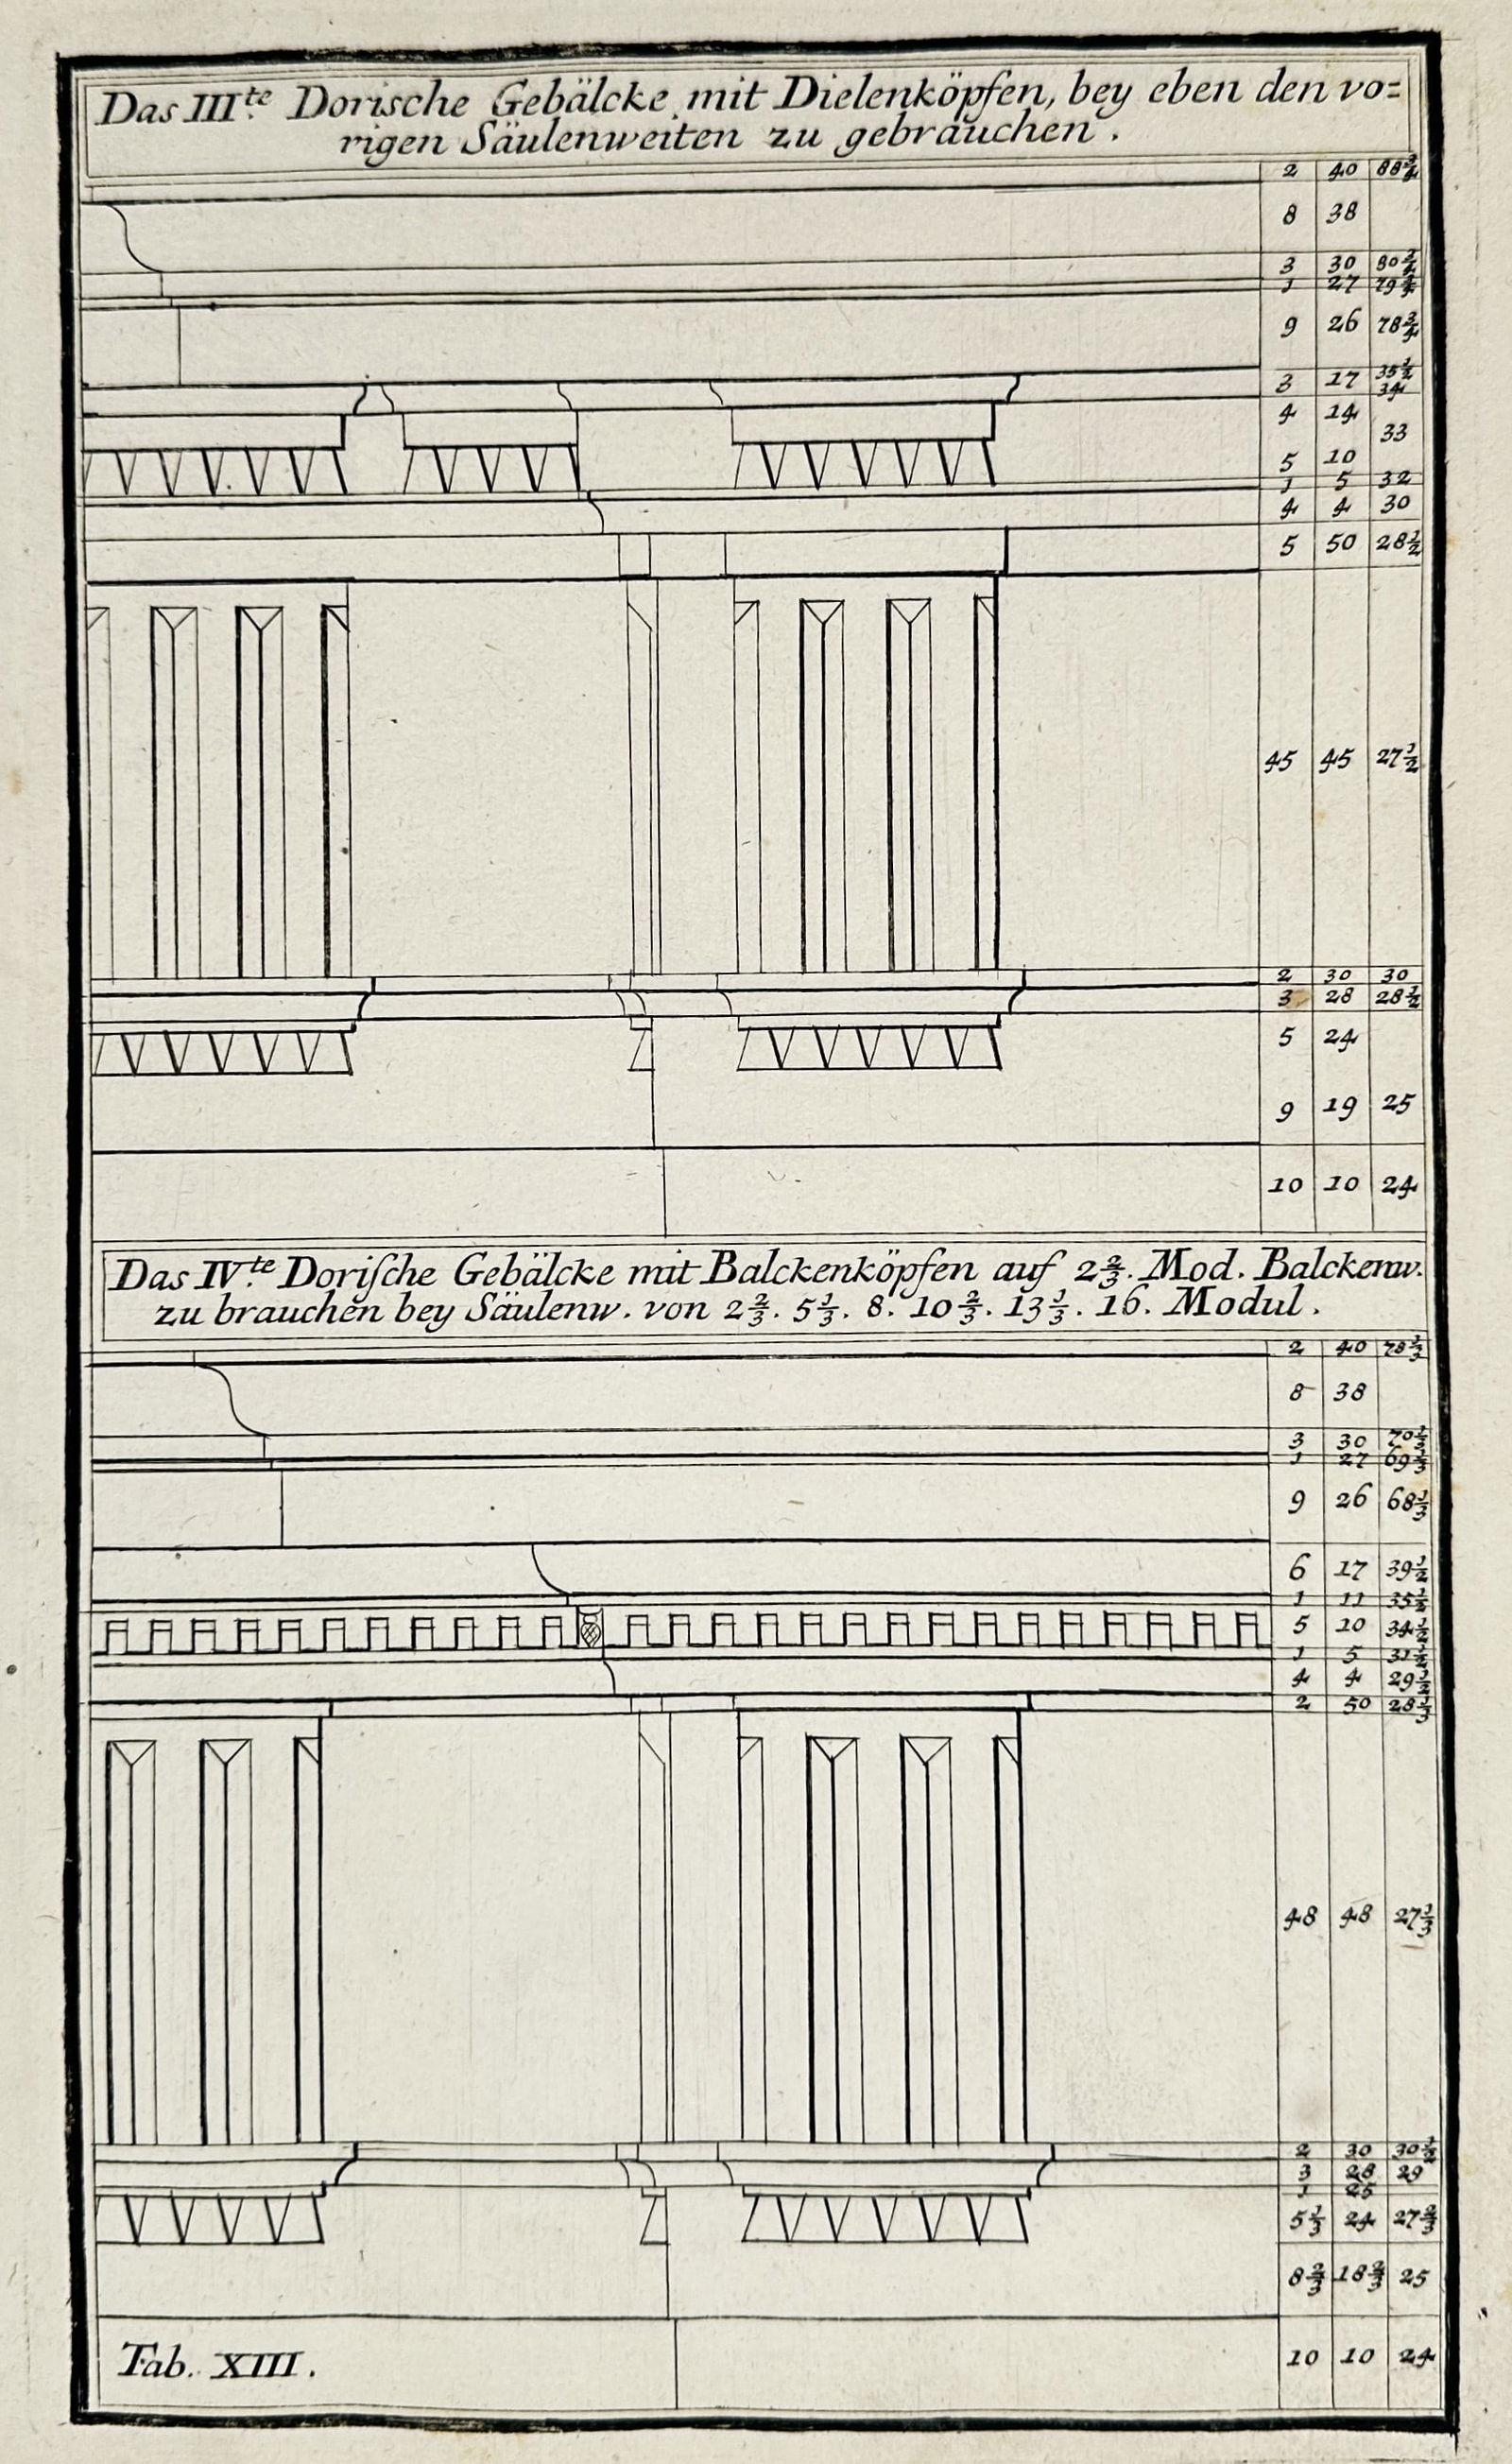 Das III.te Dorische Gebälcke mit Dielenköpfen, bey eben den vo=
rigen Säulenweiten zu gebrauchen.
2 40 88 3/4
8 38
3 30 80 3/4
1 27 79 3/4
9 26 78 3/4
3 17 35 1/2
34
4 14
33
5 10
1 5 32
4 4 30
5 50 28 1/2
45 45 27 1/2
2 30 30
3 28 28 1/2
5 24
9 19 25
10 10 24
Das IV.te Doriſche Gebälcke mit Balckenköpfen auf 2 2/3. Mod. Balckenw.
zu brauchen bey Säulenw. von 2 2/3. 5 1/3. 8. 10 2/3. 13 1/3. 16. Modul.
2 40 78 1/3
8 38
3 30 70 1/3
1 27 69 1/3
9 26 68 1/3
6 17 39 1/2
1 11 35 1/2
5 10 34 1/2
1 5 31 1/2
4 4 29 1/2
2 50 28 1/3
48 48 27 1/3
2 30 30 1/2
3 28 29
1 25
5 1/3 24 27 2/3
8 2/3 18 2/3 25
10 10 24
Tab. XIII.